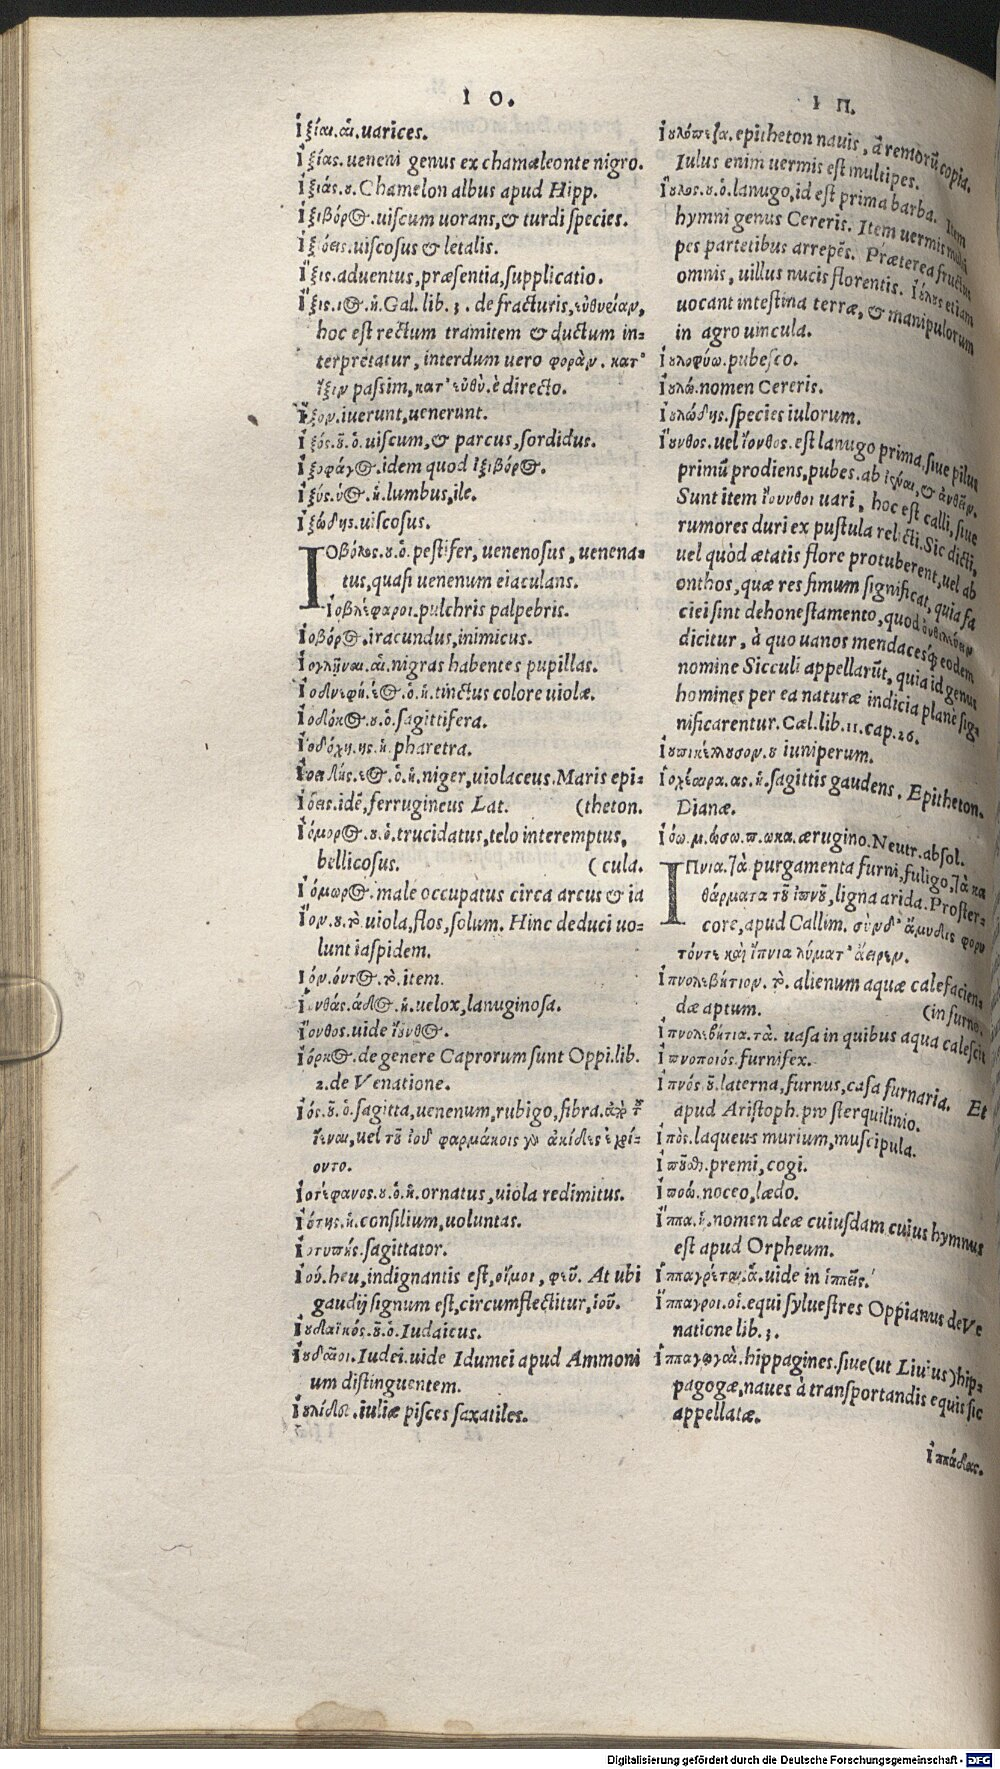 Ι Ο.
Ἰξίαι.αἱ.uarices.
Ἰξίας.ueneni genus ex chamæleonte nigro.
Ἰξιάς.ου.Chamelon albus apud Hipp.
Ἰξιβόρος.uiscum uorans,& turdi species.
Ἰξιόεις.uiscosus & letalis.
Ἵξις.aduentus,præsentia,supplicatio.
Ἵξις.ιος.ἡ.Gal.lib.3.de fracturis,εὐθυείαν,
hoc est rectum tramitem & ductum in=
terpretatur, interdum uero φοράν. κατ'
ἵξιν passim,κατ' εὐθὺ.è directo.
Ἷξον.iuerunt,uenerunt.
Ἰξός.οῦ.ὁ.uiscum,& parcus,sordidus.
Ἰξοφάγος.idem quod ἰξιβόρος.
Ἰξύς.ύος.ἡ.lumbus,ile.
Ἰξώδης.uiscosus.
ΙΟβόλος.ου.ὁ.pestifer, uenenosus, uenena=
tus,quasi uenenum eiaculans.
Ἰοβλέφαροι.pulchris palpebris.
Ἰοβόρος.iracundus,inimicus.
Ἰογλῆναι.αἱ.nigras habentes pupillas.
Ἰοδνεφὴ.έος.ὁ.ἡ.tinctus colore uiolæ.
Ἰοδόκος.ου.ὁ.sagittifera.
Ἰοδόχη.ης.ἡ.pharetra.
Ἰοειδής.έος.ὁ.ἡ.niger,uiolaceus.Maris epi=
Ἰόεις.idē,ferrugineus Lat. (theton.
Ἰόμορος.ου.ὁ.trucidatus,telo interemptus,
bellicosus. (cula.
Ἰόμωρος.male occupatus circa arcus & ia
Ἴον.ου.τὸ.uiola,flos,solum. Hinc deduci uo=
lunt iaspidem.
Ἰόν.όντος.τὸ.item.
Ἰονθάς.άδος.ἡ.uelox,lanuginosa.
Ἴονθος.uide ἴουνθος.
Ἰόρκος.de genere Caprorum sunt Oppi.lib.
2.de Venatione.
Ἰός.οῦ.ὁ.sagitta,uenenum,rubigo,fibra.ἀπὸ τοῦ
ἴεναι,uel τοῦ ἰοῦ φαρμάκοις γὰρ ἀκίδες ἐχρί=
οντο.
Ἰοστέφανος.ου.ὁ.ἡ.ornatus,uiola redimitus.
Ἰότης.ἡ.consilium,uoluntas.
Ἰοτυπής.sagittator.
Ἰού.heu,indignantis est,οἴμοι, φεῦ. At ubi
gaudij signum est,circumflectitur,ἰοῦ.
Ἰουδαϊκός.οῦ.ὁ.Iudaicus.
Ἰουδαῖοι.Iudei.uide Idumei apud Ammoni
um distinguentem.
Ἰουλίδες.iuliæ pisces saxatiles.
Ι Π.
Ἰουλόπεζα.epitheton nauis, à remorū copia.
Iulus enim uermis est multipes.
Ἴουλος.ου.ὁ.lanugo,id est prima barba. Item
hymni genus Cereris. Item uermis multi
pes parietibus arrepēs. Præterea fructus
omnis, uillus nucis florentis. Ἰούλους etiam
uocant intestina terræ, & manipulorum
in agro uincula.
Ἰουλοφύω.pubesco.
Ἰουλώ.nomen Cereris.
Ἰουλώδης.species iulorum.
Ἴουνθος.uel ἴονθος.est lanugo prima,siue pilus
primū prodiens,pubes.ab ἰέναι,& ἀνθεῖν.
Sunt item ἴουνθοι uari, hoc est calli, siue
rumores duri ex pustula relicti.Sic dicti,
uel quòd ætatis flore protuberent,uel ab
onthos,quæ res fimum significat, quia fa
ciei sint dehonestamento,quod ὀνθιλεύειν
dicitur, à quo uanos mendacesq́; eodem
nomine Sicculi appellarūt, quia id genus
homines per ea naturæ indicia planè sig=
nificarentur. Cæl.lib.11.cap.26.
Ἰουπικέλλουσον.ου iuniperum.
Ἰοχέαιρα.ας.ἡ.sagittis gaudens. Epitheton.
Dianæ.
Ἰόω.μ.ώσω.π.ωκα.ærugino.Neutr.absol.
ΙΠνια.τὰ purgamenta furni,fuligo,τὰ κα
θάρματα τοῦ ἰπνοῦ,ligna arida.Proster=
core,apud Callim. σὺν δ' ἄμυδις φορυ
τόντε καὶ ἴπνια λύματ' ἄειρεν.
Ἰπνολεβήτιον.τὸ. alienum aquæ calefacien=
dæ aptum. (in furno.
Ἰπνολεβήτια.τὰ. uasa in quibus aqua calescit
Ἰπνοποιός.furnifex.
Ἰπνός οῦ.laterna,furnus,casa furnaria. Et
apud Aristoph.pro sterquilinio.
Ἰπός.laqueus murium,muscipula.
Ἰποῦσθαι.premi,cogi.
Ἰπόω.noceo,lædo.
Ἵππα.ἡ.nomen deæ cuiusdam cuius hymnus
est apud Orpheum.
Ἱππαγρέται.αἱ.uide in ἱππεῖς.
Ἵππαγροι.οἱ.equi syluestres Oppianus de Ve
natione lib.3.
Ἱππαγωγαὶ.hippagines.siue(ut Liuius)hip=
pagogæ,naues à transportandis equis sic
appellatæ.
Ἱππάδας.
Digitalisierung gefördert durch die Deutsche Forschungsgemeinschaft - DFG